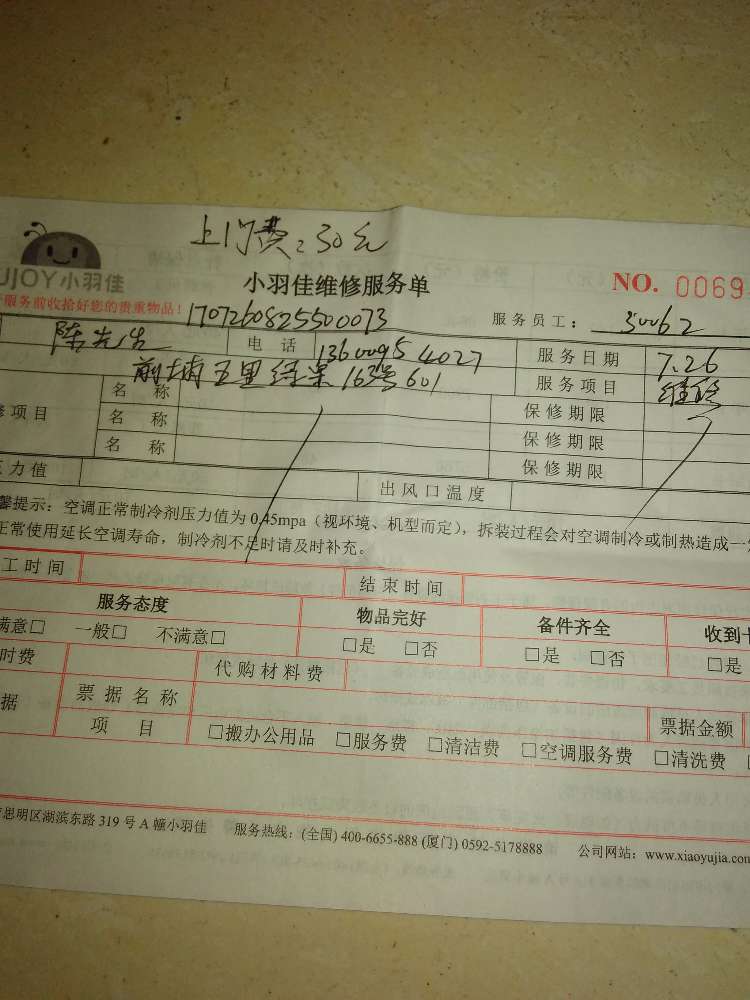 上门费:30元
UJOY小羽佳
小羽佳维修服务单
NO. 0069
服务前收拾好您的贵重物品!
1707260825500073
服务员工: 30062
陈先生 电话 13600954027 服务日期 7.26
前埔五里 163号601 服务项目 维修
名称 保修期限
项目 名称 保修期限
名称 保修期限
力值 出风口温度
馨提示:空调正常制冷剂压力值为0.45mpa(视环境、机型而定),拆装过程会对空调制冷或制热造成一
正常使用延长空调寿命,制冷剂不足时请及时补充。
工时间 结束时间
服务态度 物品完好 备件齐全 收到
满意□ 一般□ 不满意□ □是 □否 □是 □否 □是
时费 代购材料费
据 票据名称 票据金额
项目 □搬办公用品 □服务费 □清洁费 □空调服务费 □清洗费
思明区湖滨东路319号A幢小羽佳 服务热线:(全国)400-6655-888 (厦门)0592-5178888 公司网站:www.xiaoyujia.com